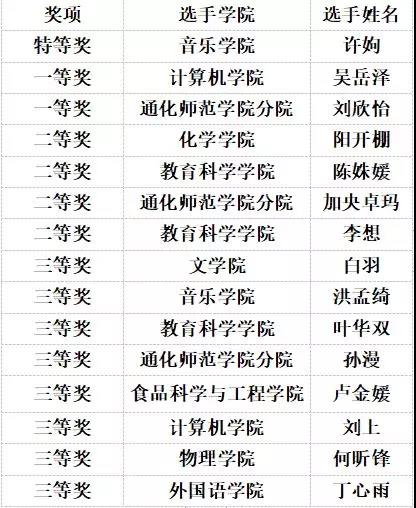 奖项 选手学院 选手姓名
特等奖 音乐学院 许姁
一等奖 计算机学院 吴岳泽
一等奖 通化师范学院分院 刘欣怡
二等奖 化学学院 阳开棚
二等奖 教育科学学院 陈姝媛
二等奖 通化师范学院分院 加央卓玛
二等奖 教育科学学院 李想
三等奖 文学院 白羽
三等奖 音乐学院 洪孟绮
三等奖 教育科学学院 叶华双
三等奖 通化师范学院分院 孙漫
三等奖 食品科学与工程学院 卢金媛
三等奖 计算机学院 刘上
三等奖 物理学院 何昕锋
三等奖 外国语学院 丁心雨